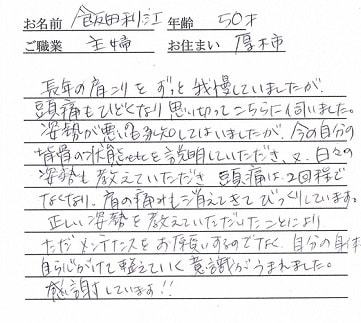 お名前 飯田利江 年齢 50才
ご職業 主婦 お住まい 厚木市
長年の肩こりをずっと我慢していましたが、
頭痛もひどくなり思い切ってこちらに伺いました。
姿勢が悪い自覚はしてはいましたが、今の自分の
背骨の状態etcを説明していただき、又、日々の
姿勢も教えていただき頭痛は2回程で
なくなり、肩の痛みも消えてきてびっくりしています。
正しい姿勢を教えていただいたことにより
ただメンテナンスをお願いするのでなく、自分の身体
自ら心がけて整えていく意識がうまれました。
感謝しています!!